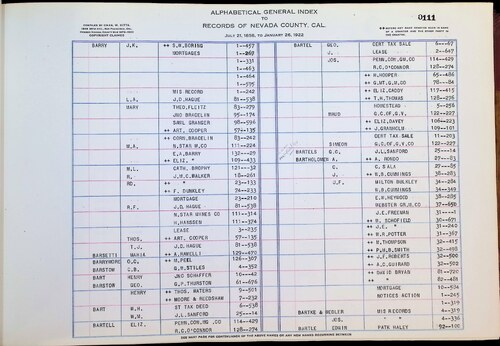 ALPHABETICAL GENERAL INDEX
TO
RECORDS OF NEVADA COUNTY, CAL.
JULY 21, 1856, TO JANUARY 26, 1922
0111
COPYRIGHT CLAIMED
BARRY J.K. ++ S.W.BORING 1--457
MORTGAGES 1--207
1--331
1--463
1--464
1--595
MIS RECORD 1--242
L.A. J.D.HAGUE 81--538
MARY THEO.FLEITZ 83--279
JNO BRADELIN 95--174
SAML GRANGER 98--596
++ ART. COOPER 57--135
++ CORN.BRADELIN 83--242
M.A. N.STAR M.CO 111--224
E.A.BARRY 132--29
++ ELIZ. " 109--433
M.L. CATH. BROPHY 121--32
R. J.W.C.WALKER 18--261
RD. ++ " 23--133
++ F. DUNKLEY 74--233
MORTGAGE 23--210
R.F. J.D.HAGUE 81--538
N.STAR MINES CO 111--314
H.HANSSEN 111--374
LEASE 3--235
THOS. ++ ART. COOPER 57--135
T.J. J.D.HAGUE 81--538
BARSETTI MARIA ++ A.RAVELLI 129--470
BARRYMORE O.C. ++ M.PEEL 126--307
BARSTOW G.B. G.W.STILES 4--352
BART HENRY JNO SCHAFFER 10--442
BARSTOW GEO. G.P.THURSTON 61--676
HENRY ++ THOS. WATERS 9--501
++ MOORE & REDSHAW 7--232
BART W.H. ST TAX DEED 6--538
W.M. J.L.SANFORD 25--14
BARTELL ELIZ. PENN.CON.MG .CO 114--429
R.C.O'CONNOR 128--274
BARTEL GEO. CERT TAX SALE 6--67
J. LEASE 2--247
JOS. PENN.CON.GM.CO 114--429
R.C.O'CONNOR 128--274
++ H.HOOPER 65--486
++ G.MT.QM.CO 78--84
++ ELIZ.GADDY 117--415
++ T.H.THOMAS 128--276
HOMESTEAD 5--256
RHUS G.C.OF.G.V. 122--227
++ ELIZ.DAVEY 106--223
++ J.GRASHOLM 109--101
CERT TAX SALE 11--293
SIMEON G.C.OF.G.V.CO 122--227
BARTELS G.C. J.L.SANFORD 25--14
BARTHOLOMEW A. ++ A.RONDO 27--83
C. C.SALA 27--85
J. ++ W.B.CUMMINGS 38--283
J.F. MILTON BULKLEY 34--284
W.B.CUMMINGS 34--349
E.H.HEYMOE 38--285
WEBSTER GR.M.CO 37--450
J.E.FREEMAN 31--145
++ M. SCHOFIELD 30--671
++ J.E. " 31--242
++ H.R.POTTER 31--367
++ M.THOMPSON 32--415
++ F.M.B.SMITH 32--498
++ J.F.ROBERTS 32--500
++ A.C.GUIRARD 32--502
++ DAVID BRYAN 81--720
++ " 82--401
MORTGAGE 10--524
NOTICES ACTION 1--245
1--319
BARTKE & WEBLER MIS RECORDS 4--319
JOS. " " 4--336
BARTLE EDWIN PATK HALEY 92--105